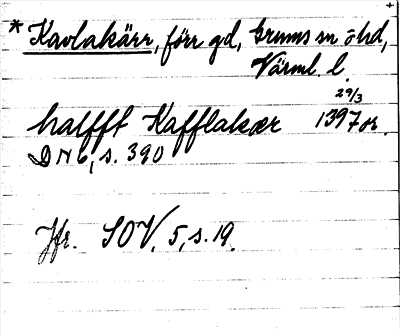 * Kavlakärr, förr gd, Grums sn o hd,
Värml. l.
halfft Kafflakær 29/3 1397 or.
DN 6, s. 390
Jfr. SOV. 5, s. 19.